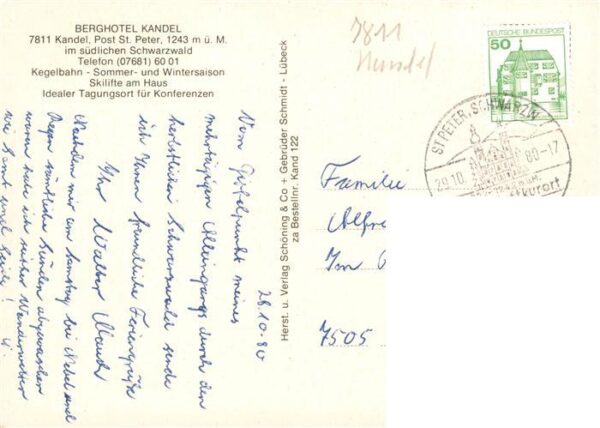 BERGHOTEL KANDEL
7811 Kandel, Post St. Peter, 1243 m ü. M.
im südlichen Schwarzwald
Telefon (07681) 60 01
Kegelbahn - Sommer- und Wintersaison
Skilifte am Haus
Idealer Tagungsort für Konferenzen
28.10.80
Vom Gipfelpunkt meines
mehrtägigen Alleingangs durch den
herbstlichen Schwarzwald sende
ich Ihnen freundliche Feriengrüße
Ihr Walter
Nachdem mir am Samstag bei Nebel und
Regen sämtliche Sünden abgewaschen
waren habe ich seither Wanderwetter
wie Samt und Seide!
Herst. u. Verlag Schöning & Co + Gebrüder Schmidt - Lübeck
za Bestellnr. Kand 122
7811
Kandel
DEUTSCHE BUNDESPOST
50
ST PETER, SCHWARZW
29.10.80-17
kurort
Familie
Alfre
Im
7505